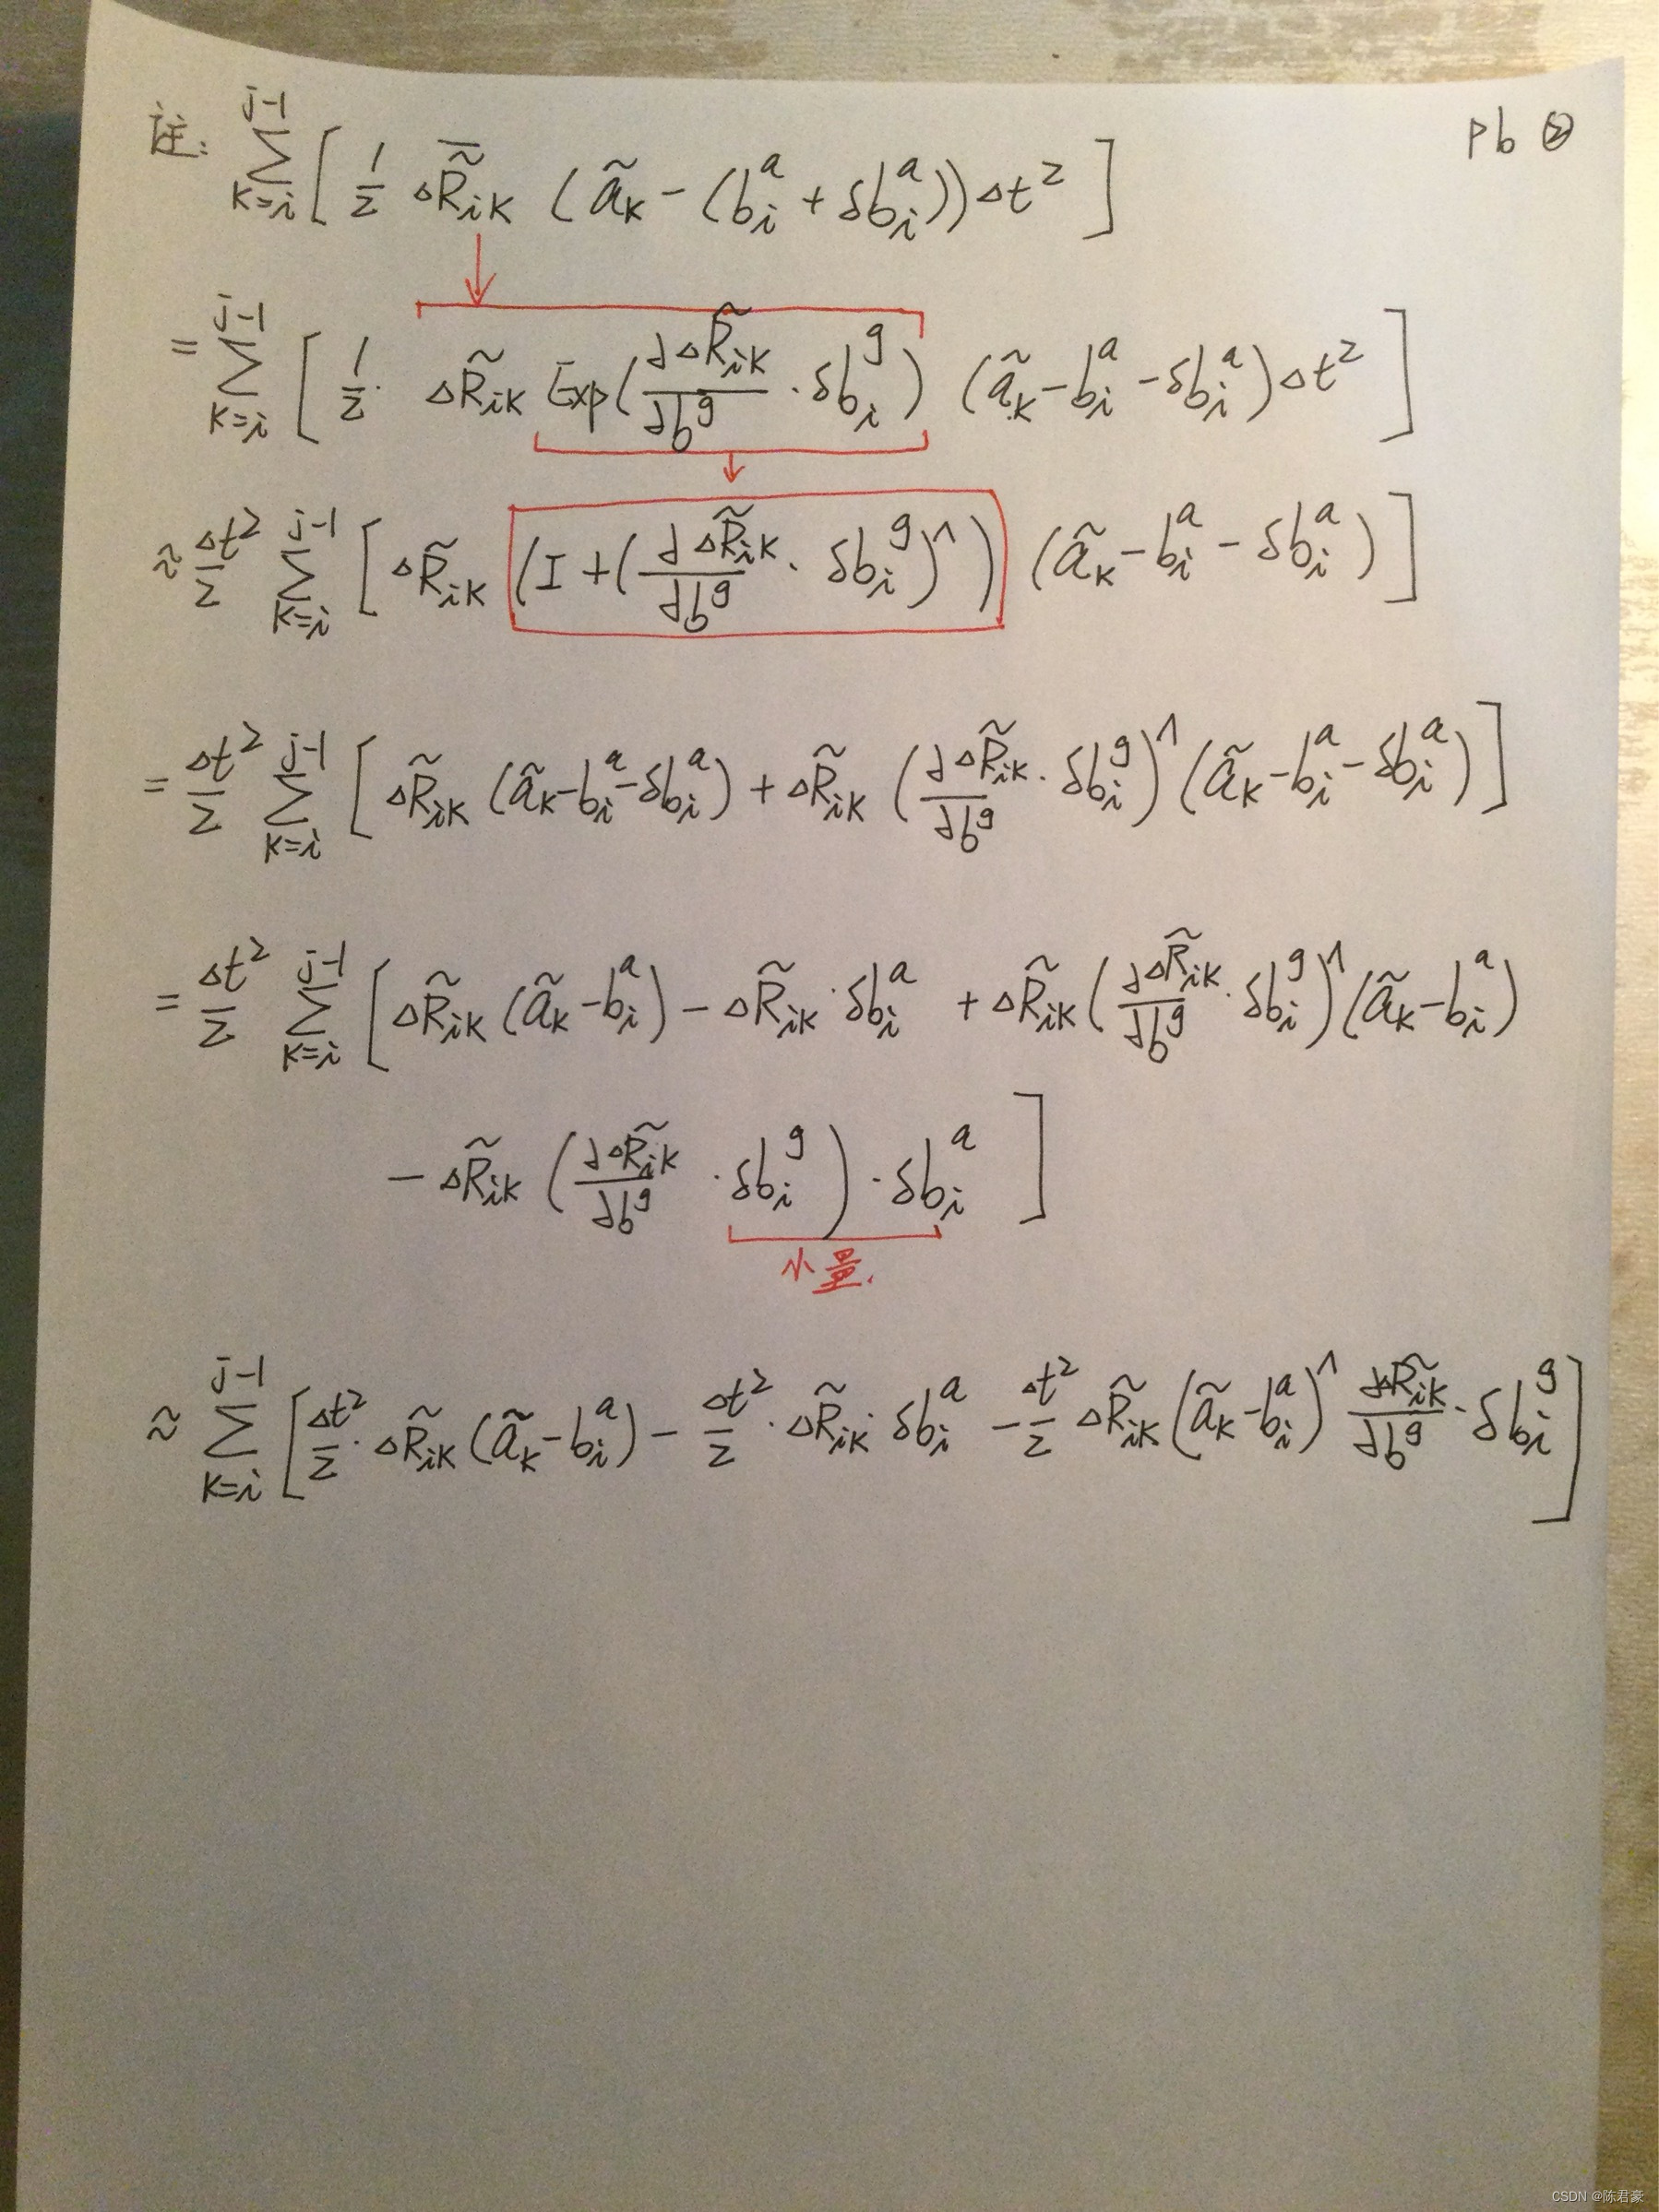 注: $\sum_{k=i}^{j-1}\left[\frac{1}{2}\Delta\overline{\tilde{R}}_{ik}(\tilde{a}_k-(b_i^a+\delta b_i^a))\Delta t^2\right]$ Pb ②
$=\sum_{k=i}^{j-1}\left[\frac{1}{2}\cdot\Delta\tilde{R}_{ik}Exp(\frac{\partial\Delta\tilde{R}_{ik}}{\partial b^g}\cdot\delta b_i^g)(\tilde{a}_k-b_i^a-\delta b_i^a)\Delta t^2\right]$
$\approx\frac{\Delta t^2}{2}\sum_{k=i}^{j-1}\left[\Delta\tilde{R}_{ik}(I+(\frac{\partial\Delta\tilde{R}_{ik}}{\partial b^g}\cdot\delta b_i^g)^\wedge)(\tilde{a}_k-b_i^a-\delta b_i^a)\right]$
$=\frac{\Delta t^2}{2}\sum_{k=i}^{j-1}\left[\Delta\tilde{R}_{ik}(\tilde{a}_k-b_i^a-\delta b_i^a)+\Delta\tilde{R}_{ik}(\frac{\partial\Delta\tilde{R}_{ik}}{\partial b^g}\cdot\delta b_i^g)^\wedge(\tilde{a}_k-b_i^a-\delta b_i^a)\right]$
$=\frac{\Delta t^2}{2}\sum_{k=i}^{j-1}[\Delta\tilde{R}_{ik}(\tilde{a}_k-b_i^a)-\Delta\tilde{R}_{ik}\cdot\delta b_i^a+\Delta\tilde{R}_{ik}(\frac{\partial\Delta\tilde{R}_{ik}}{\partial b^g}\cdot\delta b_i^g)^\wedge(\tilde{a}_k-b_i^a)$
$-\Delta\tilde{R}_{ik}(\frac{\partial\Delta\tilde{R}_{ik}}{\partial b^g}\cdot\delta b_i^g)\cdot\delta b_i^a]$
小量.
$\approx\sum_{k=i}^{j-1}\left[\frac{\Delta t^2}{2}\cdot\Delta\tilde{R}_{ik}(\tilde{a}_k-b_i^a)-\frac{\Delta t^2}{2}\cdot\Delta\tilde{R}_{ik}\cdot\delta b_i^a-\frac{\Delta t^2}{2}\Delta\tilde{R}_{ik}(\tilde{a}_k-b_i^a)^\wedge\frac{\partial\Delta\tilde{R}_{ik}}{\partial b^g}\cdot\delta b_i^g\right]$
CSDN @陈君豪